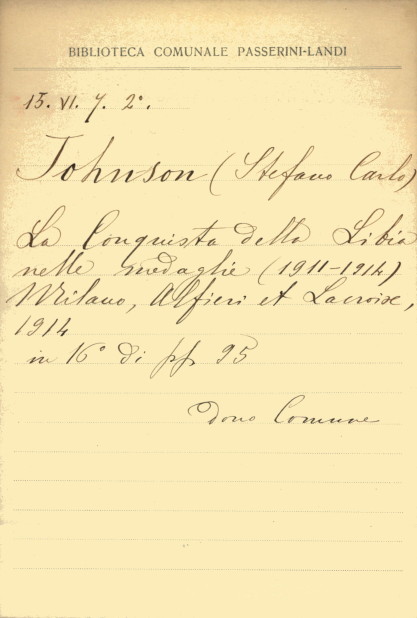 BIBLIOTECA COMUNALE PASSERINI-LANDI
15. VI. 7. 2°.
Johnson (Stefano Carlo)
La Conquista della Libia
nelle medaglie (1911-1914)
Milano, Alfieri et Lacroix,
1914
in 16° di pp 95
Dono Comune